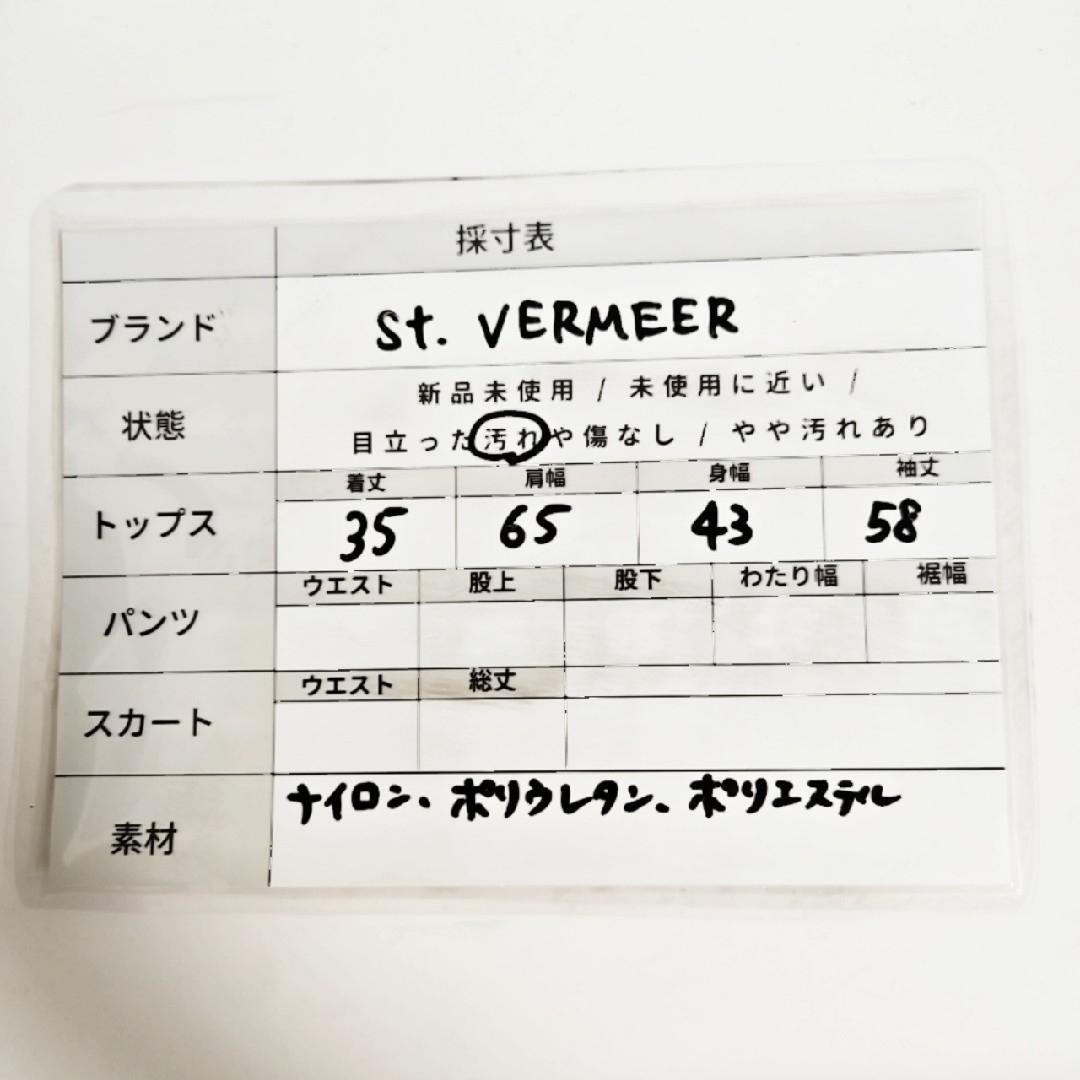 採寸表
ブランド St. VERMEER
状態 新品未使用 / 未使用に近い /
目立った汚れや傷なし / やや汚れあり
着丈 肩幅 身幅 袖丈
トップス 35 65 43 58
ウエスト 股上 股下 わたり幅 裾幅
パンツ
ウエスト 総丈
スカート
素材 ナイロン、ポリウレタン、ポリエステル